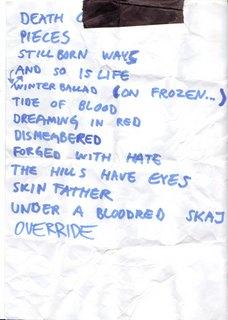 DEATH
PIECES
STILLBORN WAYS
AND SO IS LIFE
WINTER BALLAD (ON FROZEN...)
TIDE OF BLOOD
DREAMING IN RED
DISMEABERED
FORGED WITH HATE
THE HILLS HAVE EYES
SKIN FATHER
UNDER A BLOODRED SKAJ
OVERRIDE